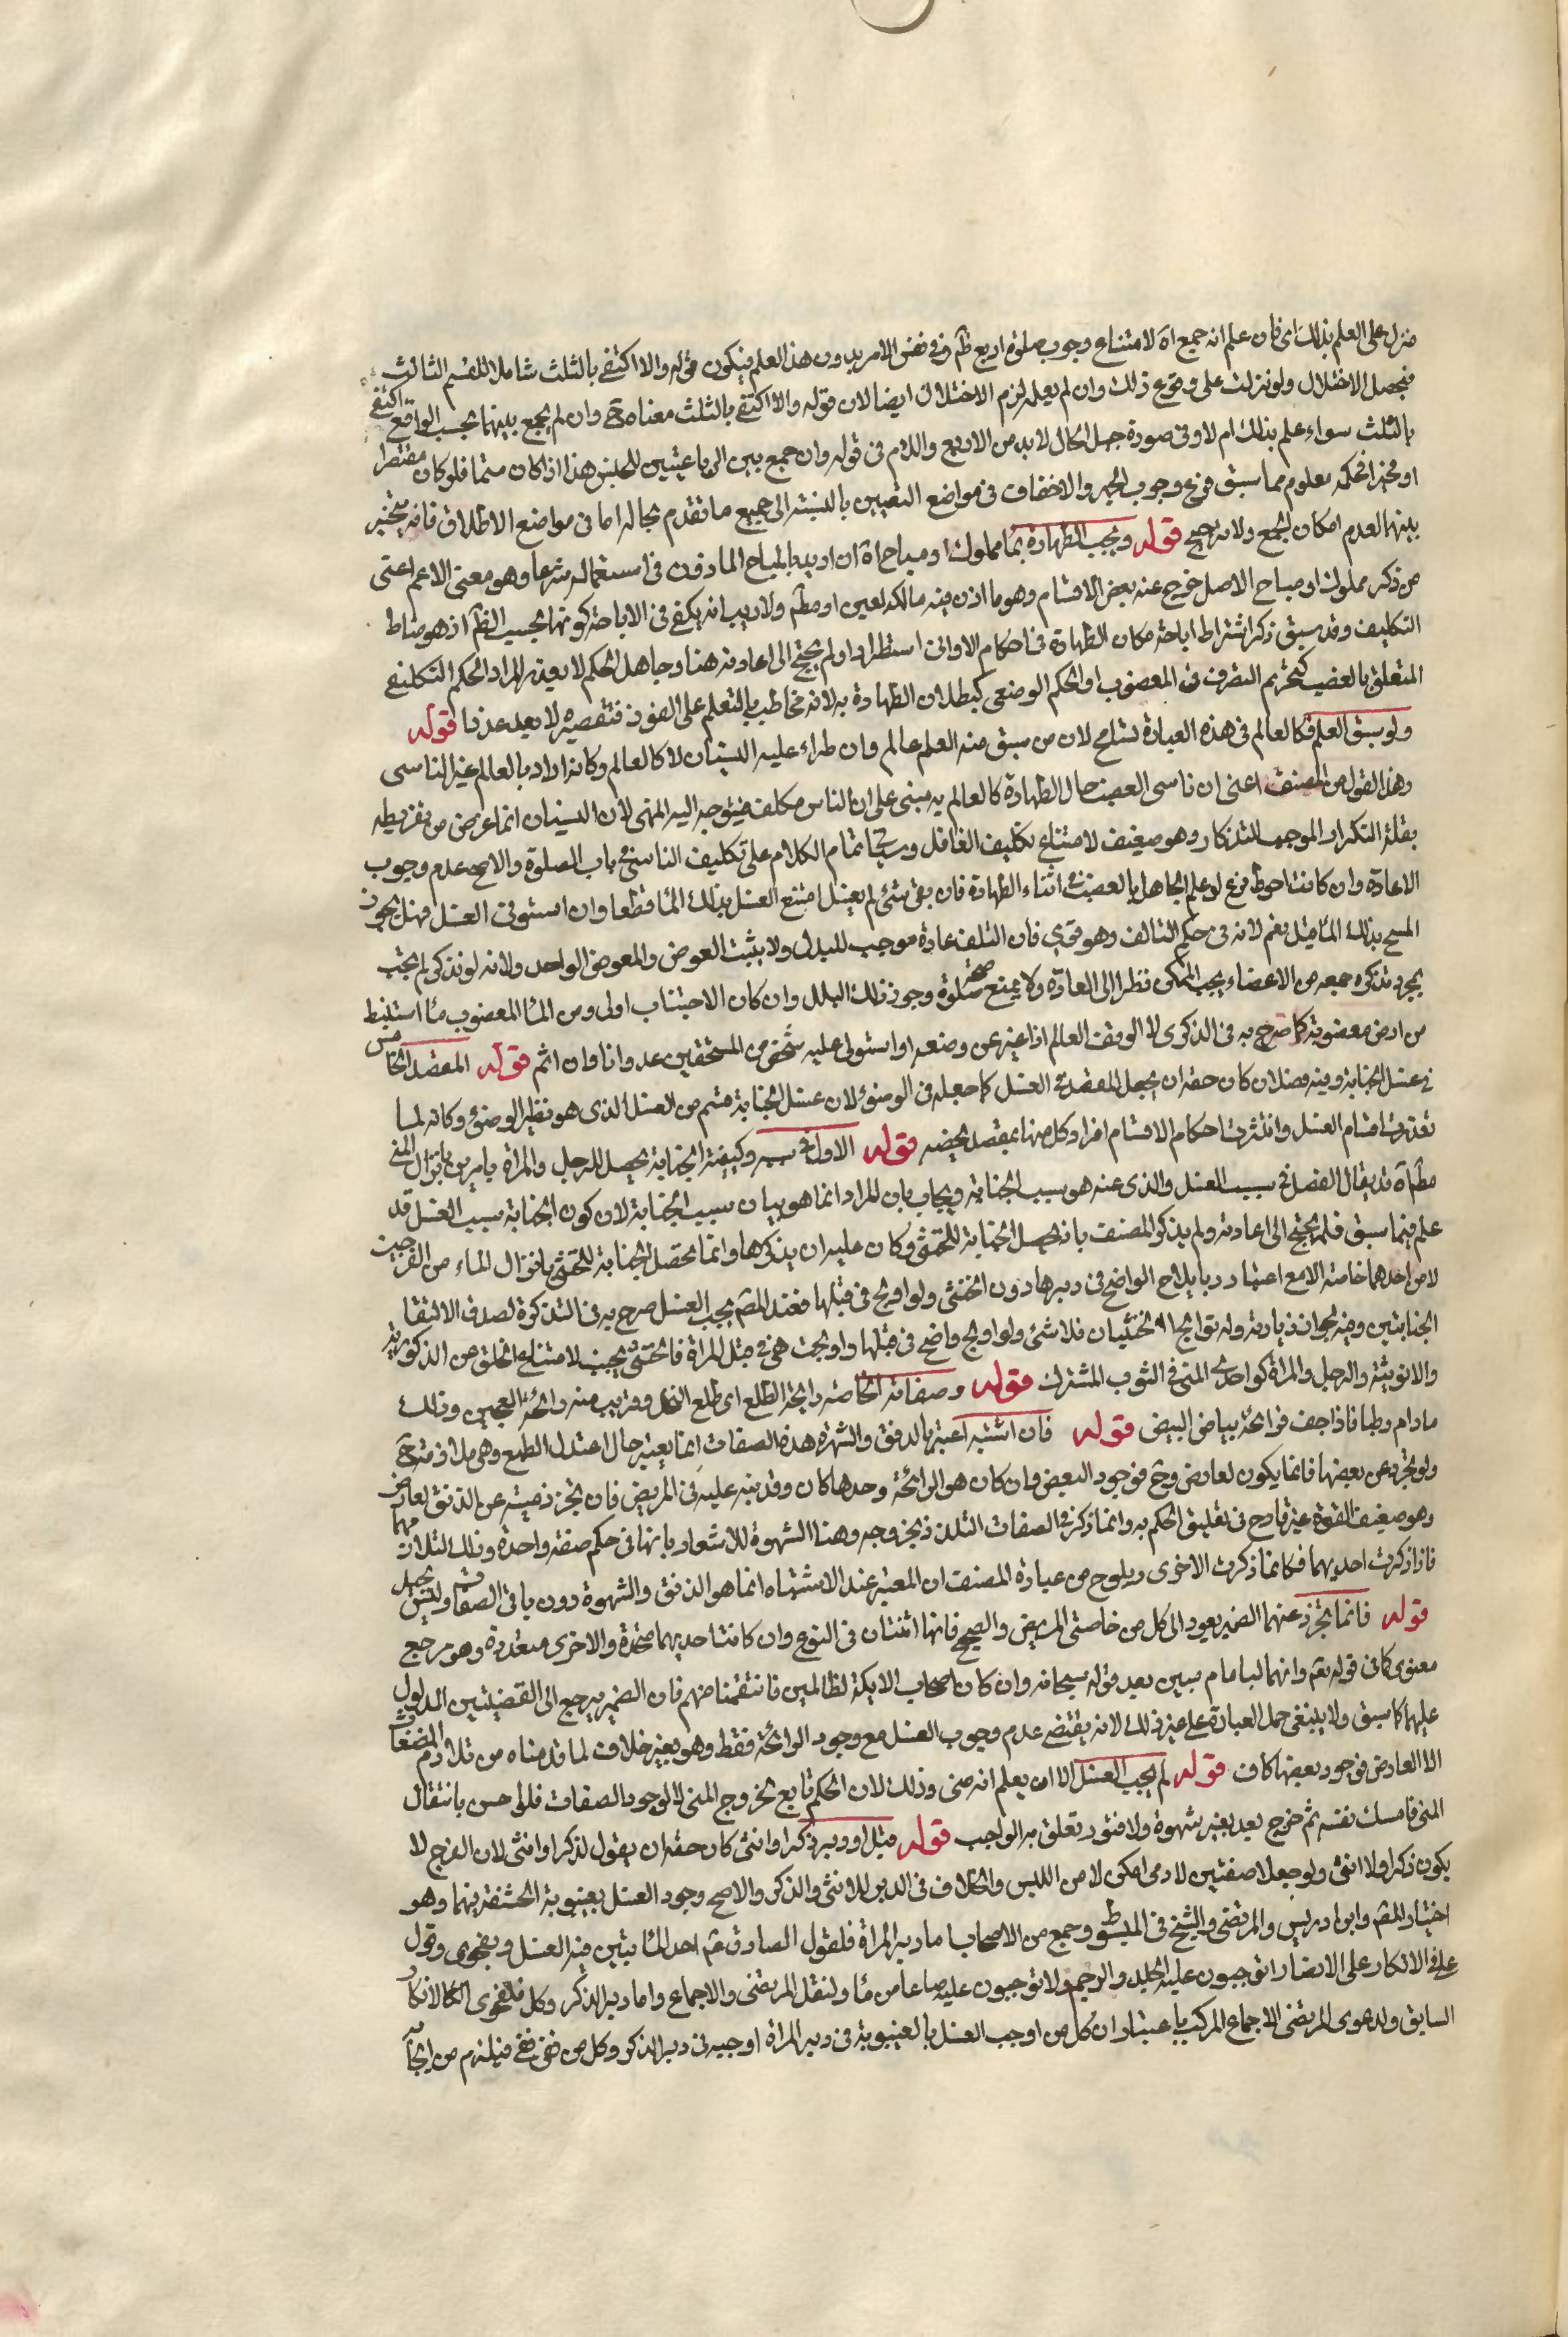 منزل على العلم بذلك اى فان علم انه جمع اه لامتناع وجوب صلوة اربع ظم فى نفس الامر بدون هذا العلم فيكون قوله والا اكتفى بالثلث شاملا للقسم الثالث
فيحصل الاختلال ولو نزلت على وقوع ذلك وان لم يعلم لزم الاختلال ايضا لان قوله والا اكتفى بالثلث معناه ح وان لم يجمع بينهما بحسب الواقع اكتفى
بالثلث سواء علم بذلك ام لا وفى صورة جهل الحال لابد من الاربع واللام فى قوله وان جمع بين الرباعيتين للجنس هذا اذا كان متما فلو كان مقتصرا
او مخيرا فحكمه معلوم مما سبق فرع وجوب الجهر والاخفات فى مواضع التعيين بالنسبة الى جميع ما تقدم بحاله اما فى مواضع الاطلاق فانه يتخير
بينهما لعدم امكان الجمع ولا ترجيح قوله ويجب الطهارة بماء مملوك او مباح اه ان اريد بالمباح الماذون فى استعماله شرعا وهو معنى الاعم اغنى
من ذكر مملوك او مباح الاصل خرج عنه بعض الاقسام وهو ما اذن فيه مالكه لعين او مطم ولا ريب انه يكفى فى الاباحة كونها بحسب الظم اذ هو مناط
التكليف وقد سبق ذكر اشتراط اباحة مكان الطهارة فى احكام الاوانى استطرادا ولم يحتج الى اعادته هنا وجاهل الحكم لا يعذر المراد الحكم التكليفى
المتعلق بالغصب كتحريم التصرف فى المغصوب او الحكم الوضعى كبطلان الطهارة به لانه مخاطب بالتعلم على الفور فتقصيره لا يعد عذرا قوله
ولو سبق العلم فكالعالم فى هذه العبارة تسامح لان من سبق منه العلم عالم وان طراء عليه النسيان لا كالعالم وكانه اراد بالعالم غير الناسى
وهذا القول من المصنف اعنى ان ناسى الغصب حال الطهارة كالعالم به مبنى على ان الناسى مكلف فيتوجه اليه النهى لان النسيان انما عرض من تفريطه
بقلة التكرار الموجب للتذكار وهو ضعيف لامتناع تكليف الغافل وسياتى تمام الكلام على تكليف الناسى فى باب الصلوة والاصح عدم وجوب
الاعادة وان كانت احوط فرع لو علم الجاهل بالغصب فى اثناء الطهارة فان بقى شئ لم يغسل امتنع الغسل بذلك الماء قطعا وان استوفى الغسل فهل يجوز
المسح بذلك الماء قيل نعم لانه فى حكم التالف وهو قوى فان التلف عادة موجب للبدل ولا يثبت العوض والمعوض الواحد ولانه لو تذكر لم يجب
بمجرد تذكره جمعه من الاعضاء بحسب الممكن نظرا الى العادة ولا يمنع صحة صلوة وجود ذلك البلل وان كان الاجتناب اولى ومن الماء المغصوب ماء استنبط
من ارض مغصوبة كما صرح به فى الذكرى لا الوقف العالم اذا غير عن وضعه او استولى عليه شخص من المستحقين عدوانا وان اثم قوله المقصد الخامس
فى غسل الجنابة وفيه فصلان كان حقه ان يجعل المقصد فى الغسل كما جعله فى الوضوء لان غسل الجنابة قسم من الغسل الذى هو نظير الوضوء وكانه لما
تعددت اقسام الغسل وانتشرت احكام الاقسام افرد كل منها بمقصد يخصه قوله الاول فى سببه وكيفية الجنابة يحصل للرجل والمراة بامرين بانزال المنى
مطم اه قد يقال الفصل فى سبب الغسل والذى عنه هو سبب الجنابة ويجاب بان المراد انما هو بيان سبب الجنابة لان كون الجنابة سبب الغسل قد
علم فيما سبق فلم يحتج الى اعادته ولم يذكر المصنف بانه يحصل الجنابة للخنثى وكان عليه ان يذكرها وانما تحصل الجنابة للخنثى بانزال الماء من الفرجين
لا من احدهما خاصة الا مع اعتياده وبايلاج الواضح فى دبرها دون الخنثى ولو اولج فى قبلها فعند المصم يجب الغسل صرح به فى التذكرة لصدق الالتقاء
الختانين وفيه لجواز زيادته ولو توالج الخنثيان فلا شئ ولو اولج واضح فى قبلها واولجت هى فى قبل المراة فالخنثى يجنب لامتناع الخلق من الذكورية
والانوثية والرجل والمراة كواجدى المنى فى الثوب المشترك قوله وصفاته الخاصة رايحة الطلع اى طلع النخل وقريب منه رائحة العجين وذلك
مادام رطبا فاذا جف فرائحة بياض البيض قوله فان اشتبه اعتبر بالدفق والشهوة هذه الصفات انما يعتبر حال اعتدال الطبع وهى ملازمة ح
ولو تجرد عن بعضها فانما يكون لعارض وح فوجود البعض وان كان هو الرائحة وحدها كان وقد نبه عليه فى المريض فان تجرد منيه عن الدفق لعارض
وهو ضعيف القوة غير قادح فى تعليق الحكم به وانما ذكر فى الصفات التلذذ بخروجه وهنا الشهوة للاشعار بانها فى حكم صفة واحدة وذلك لتلازمهما
فاذا ذكرت احديهما فكانما ذكرت الاخرى ويلوح من عبارة المصنف ان المعتبر عند الاشتباه انما هو الدفق والشهوة دون باقى الصفات وليس بجيد
قوله فانما تجرد عنهما الضمير يعود الى كل من خاصتى المريض والصحيح فانها اثنتان فى النوع وان كانت احديهما متحدة والاخرى متعددة وهو مرجع
معنوى كما فى قوله تعم وانهما لبامام مبين بعد قوله سبحانه وان كان اصحاب الايكة لظالمين فانتقمنا منهم فان الضمير يرجع الى القضيتين المدلول
عليهما كما سبق ولا ينبغى حمل العبارة على غير ذلك لانه يقتضى عدم وجوب الغسل مع وجود الرائحة فقط وهو يعنى خلاف لما قدمناه من تلازم الصفات
الا لعارض فوجود بعضها كاف قوله لم يجب الغسل الا ان يعلم انه منى وذلك لان الحكم تابع لخروج المنى لا لوجود الصفات فلو احس بانتقال
المنى فامسك نفسه ثم خرج بعد بغير شهوة ولا فتور تعلق به الواجب قوله قبل او دبر ذكر او انثى كان حقه ان يقول لذكر او انثى لان الفرج لا
يكون ذكرا ولا انثى ولو جعلا صفتين لادمى امكن لا من اللبس والخلاف فى الدبر للانثى والذكر والاصح وجوب الغسل بغيبوبة الحشفة فيهما وهو
اختيار المصم وابن ادريس والمرتضى والشيخ فى المبسوط وجمع من الاصحاب اما دبر المراة فلقول الصادق عم احد الماتيين فيه الغسل وبفحوى وقول
على فى الانكار على الانصار اتوجبون عليه الجلد والرجم ولا توجبون عليه صاعا من ماء ولنقل المرتضى والاجماع واما دبر الذكر وكل فلفحوى الانكار
السابق ولدعوى المرتضى الاجماع المركب باعتبار ان كل من اوجب الغسل بالغيبوبة فى دبر المراة اوجبه فى دبر الذكر وكل من نفى نفى فيلزم من ايجابه